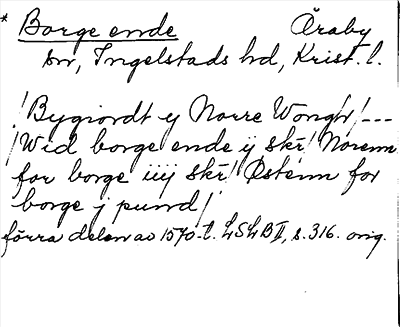 * Borge ende Åraby
sn, Ingelstads hd, Krist. l.
/Bygiordt ij Norre Wongh/---
/Wid borge ende ij skr/ Norenn
for borge iiij skr/ Østenn for
borge j pund/
förra delen av 1570-t. LSLB II, s. 316. orig.